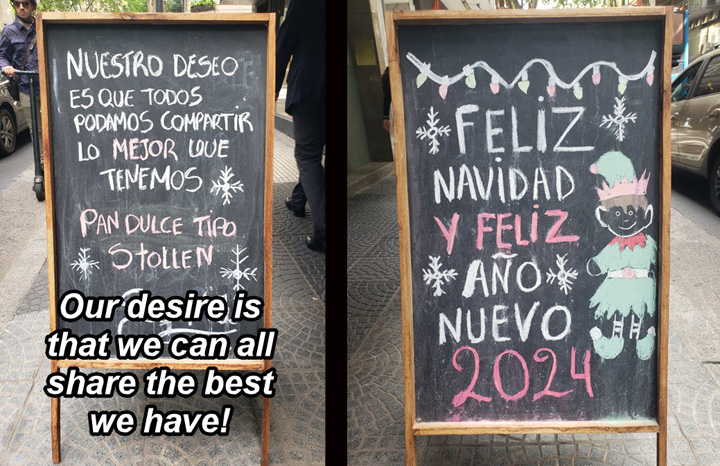 NUESTRO DESEO
ES QUE TODOS
PODAMOS COMPARTIR
LO MEJOR QUE
TENEMOS
PAN DULCE TIPO
STOLLEN
Our desire is
that we can all
share the best
we have!
FELIZ
NAVIDAD
Y FELIZ
AÑO
NUEVO
2024